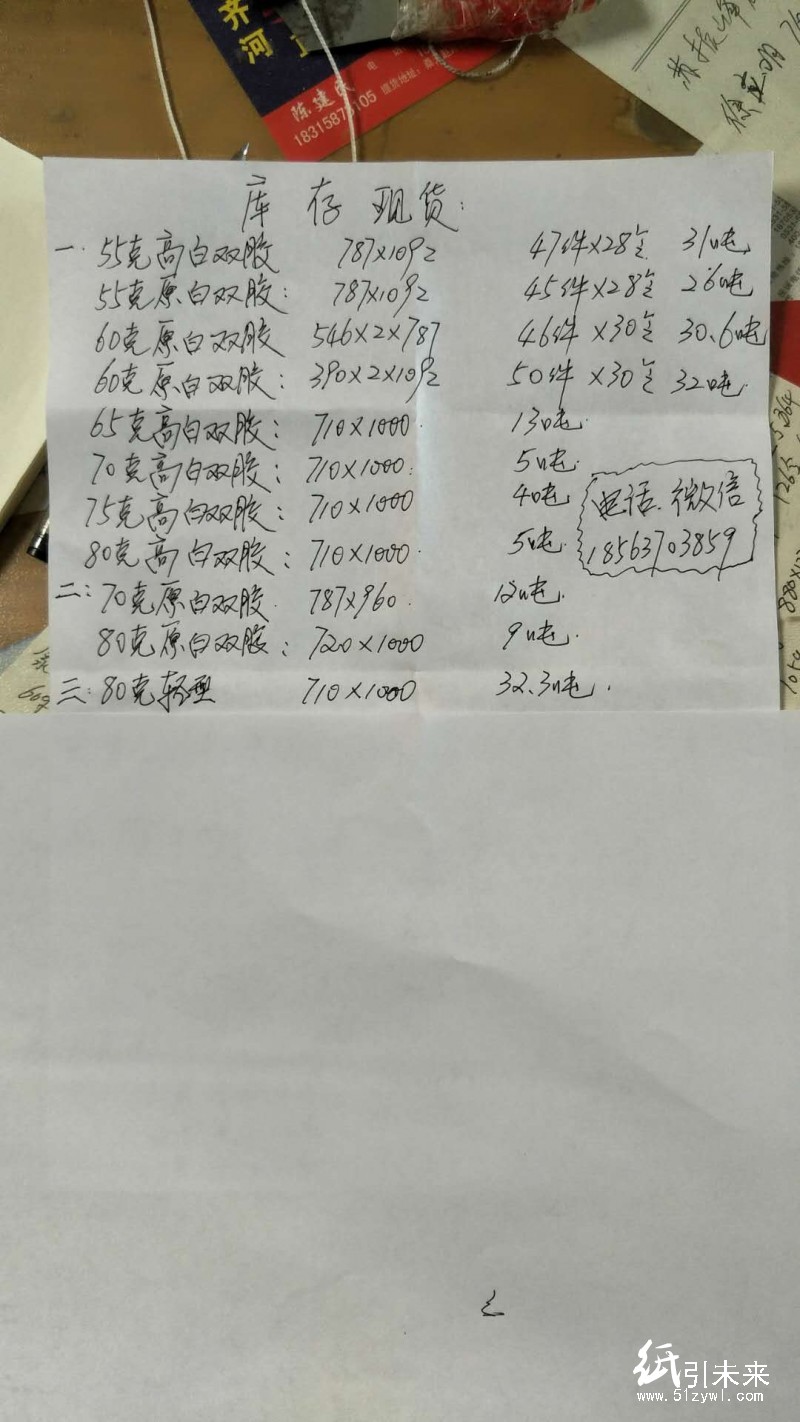 齐河
陈建
电
提货地址:
18315873105
徐立明
库存现货:
一. 55克高白双胶 787×1092 47件×28令 31吨
55克原白双胶: 787×1092 45件×28令 26吨
60克原白双胶 546×2×787 46件×30令 30.6吨
60克原白双胶: 390×2×1092 50件×30令 32吨
65克高白双胶: 710×1000. 13吨.
70克高白双胶: 710×1000. 5吨.
75克高白双胶: 710×1000 4吨
80克高白双胶: 710×1000. 5吨.
电话.微信
18563703859
二: 70克原白双胶. 787×960. 12吨.
80克原白双胶: 720×1000 9吨.
三: 80克轻型 710×1000 32.3吨.
纸引未来
www.51zywl.com